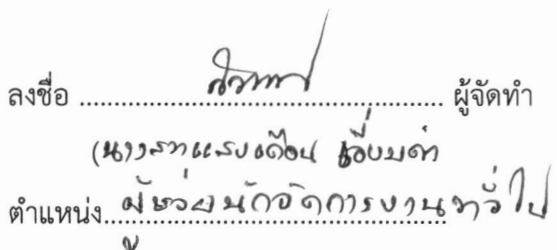 ลงชื่อ ................................................ ผู้จัดทำ
(นางสาวแสงเดือน
ตำแหน่ง ผู้ช่วยนักจัดการงานทั่วไป